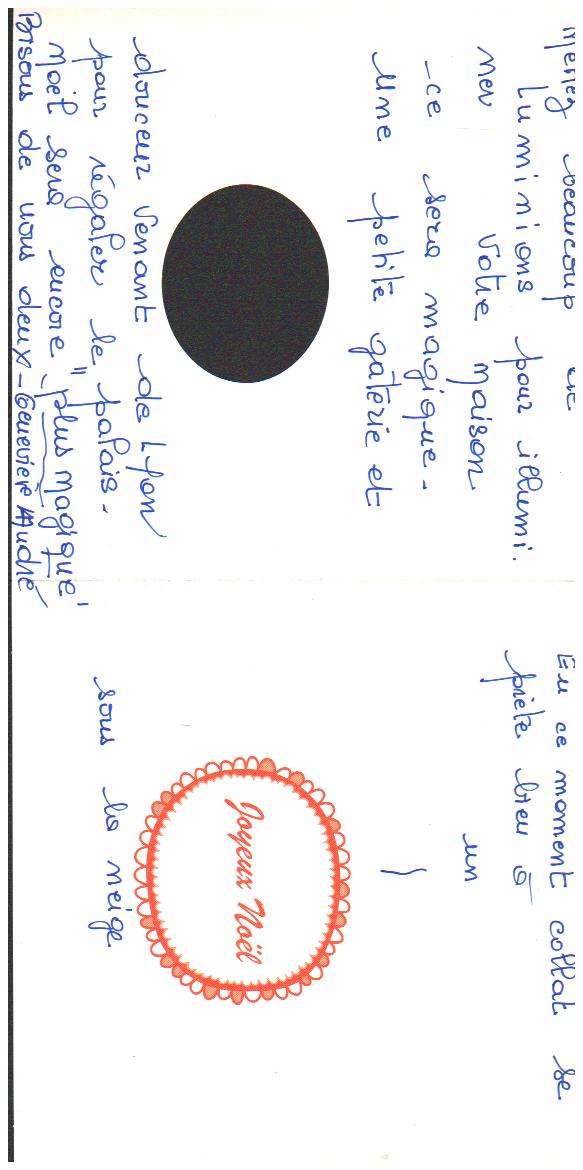 beaucoup de
Luminions pour illumi.
ner votre maison
-ce sera magique-
Une petite gâterie et
douceur venant de Lyon
pour régaler le palais-
Noël sera encore "plus magique"
Bisous de nous deux - Geneviève André
En ce moment collat se
prête bien à
un
Joyeux Noël
sous la neige